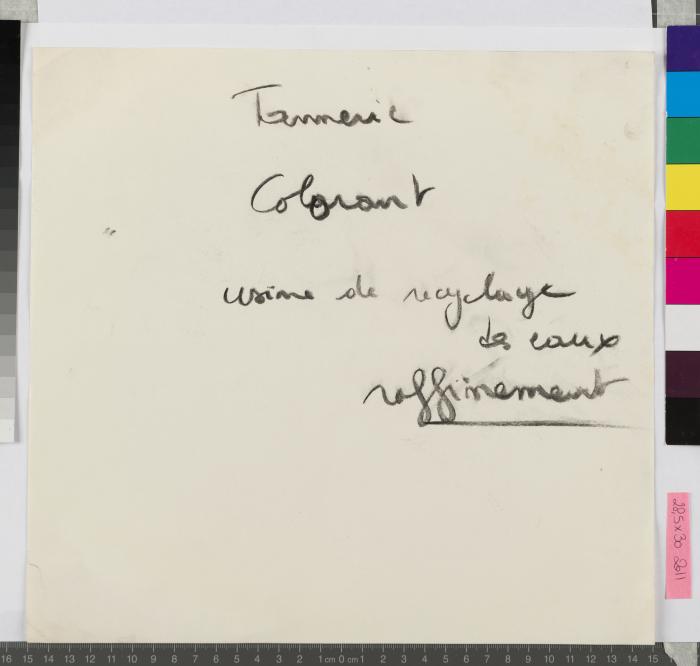 Tannerie
Colorant
usine de recyclage
des eaux
raffinement
28,5 x 30 2011
16 15 14 13 12 11 10 9 8 7 6 5 4 3 2 1 cm 0 cm 1 2 3 4 5 6 7 8 9 10 11 12 13 14 15